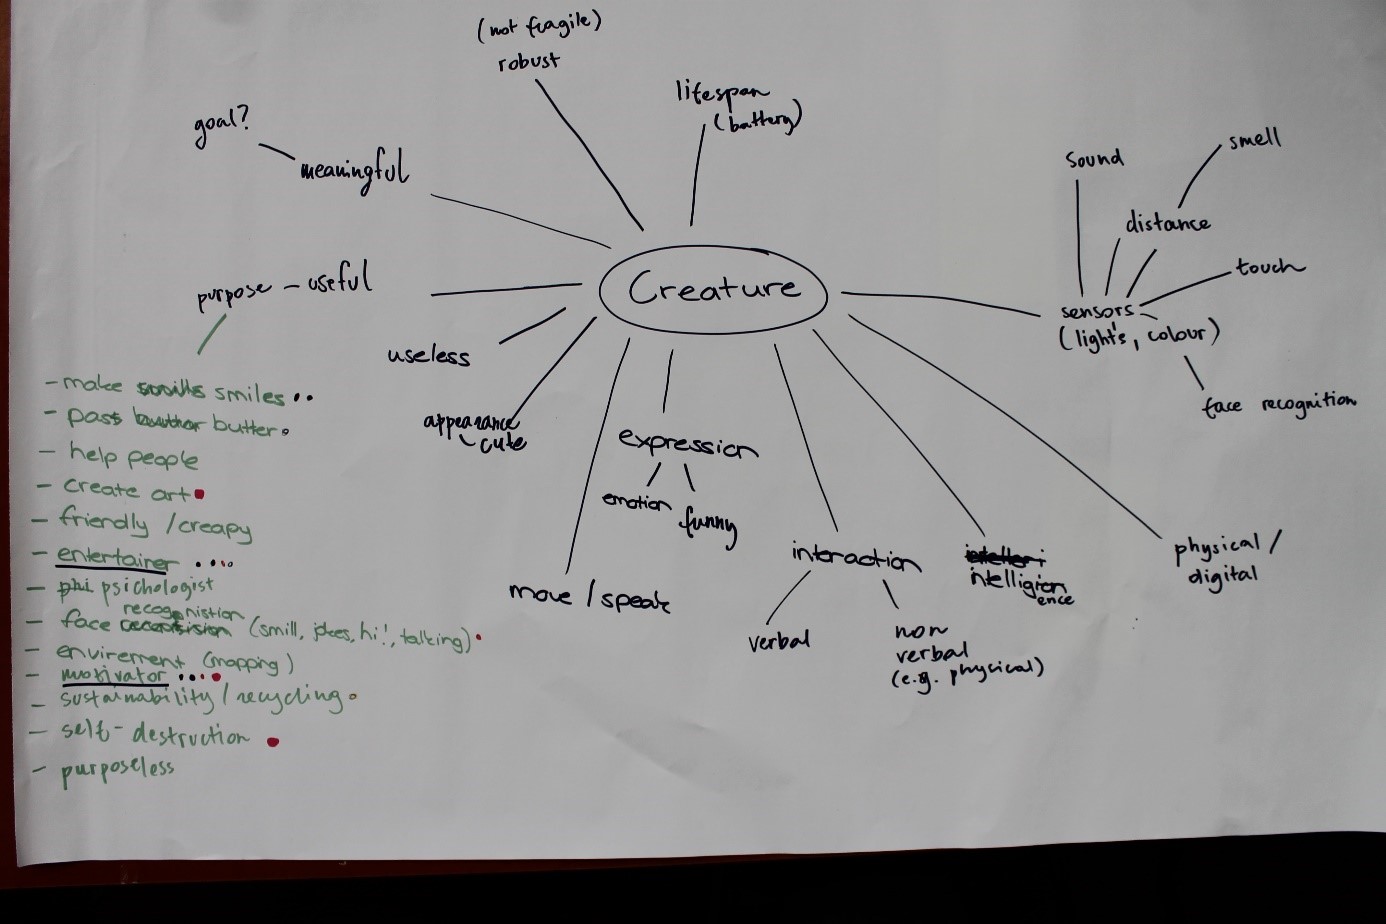 (not fragile)
robust
lifespan
(battery)
goal?
meaningful
Creature
purpose - useful
useless
appearance
cute
expression
emotion
funny
move / speak
interaction
verbal
non
verbal
(e.g. physical)
intelligien
ence
physical /
digital
sound
smell
distance
touch
sensors
(light's, colour)
face recognition
- make smiles
- pass butter
- help people
- create art
- friendly / creapy
- entertainer
- psichologist
recogenistion
- face (smill, jokes, hi!, talking)
- envirement (mapping)
- motivator
- sustainability / recycling
- self-destruction
- purposeless